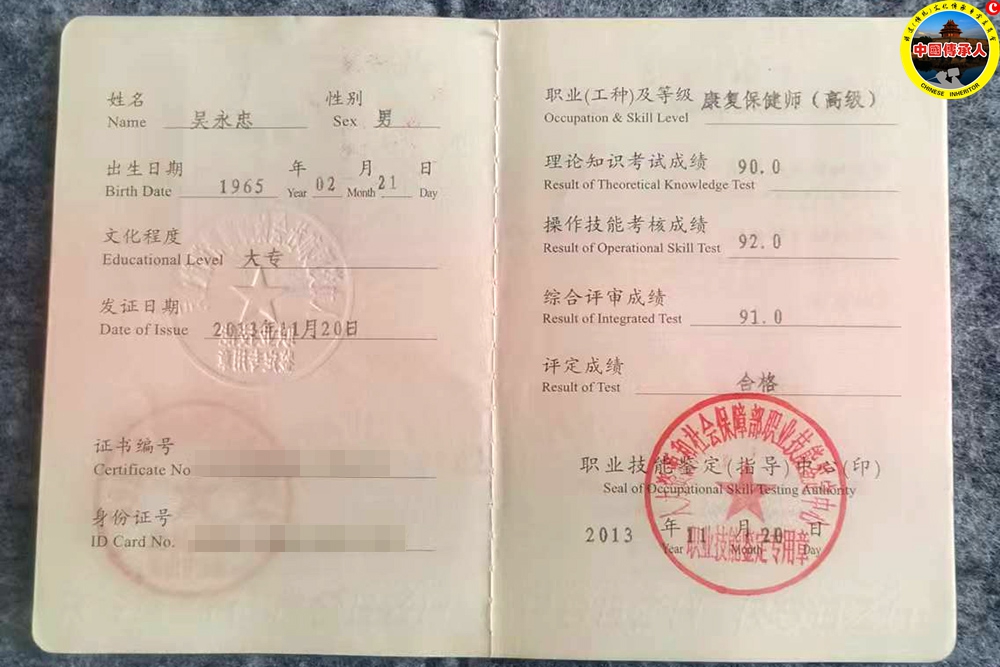 中國傳承人
CHINESE INHERITOR
C
姓名 性别
Name 吴永忠 Sex 男
出生日期 年 月 日
Birth Date 1965 Year 02 Month 21 Day
文化程度
Educational Level 大专
发证日期
Date of Issue 2013年11月20日
证书编号
Certificate No
身份证号
ID Card No.
职业(工种)及等级 康复保健师（高级）
Occupation & Skill Level
理论知识考试成绩 90.0
Result of Theoretical Knowledge Test
操作技能考核成绩 92.0
Result of Operational Skill Test
综合评审成绩
Result of Integrated Test 91.0
评定成绩
Result of Test 合格
职业技能鉴定(指导)中心(印)
Seal of Occupational Skill Testing Authority
2013 年 11 月 20 日
Year Month Day
职业技能鉴定专用章